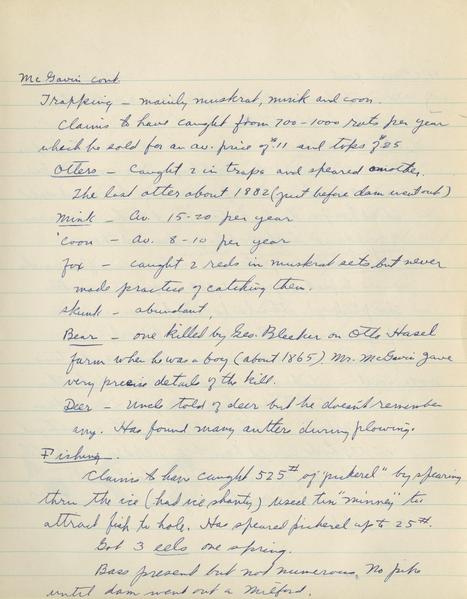 McGavin cont
Trapping – mainly muskrat, mink and coon.
Claims to have caught from 700-1000 rats per year
which he sold for an av. price of $.11 and tops of $.25
Otters – caught 2 in traps and speared another.
The last otter about 1882 (just before dam went out)
Mink – Av. 15-20 per year
'Coon – Av. 8-10 per year
Fox – caught 2 reds in muskrat sets but never
made practice of catching them.
Skunk – abundant.
Bear – one killed by Geo. Bleeker on Otto Hasel
farm when he was a boy (about 1865). Mr. McGavin gave
very precise details of the kill.
Deer – Uncle told of deer but he doesn't remember
any. Has found many antlers during plowing.
Fishing.
Claims to have caught 525# of "pickerel" by spearing
thru the ice (had ice shanty) used tin "minney" to
attract fish to hole. Has speared pickerel up to 25#.
Got 3 eels one spring.
Bass present but not numerous. No pike
until dam went out a Milford.